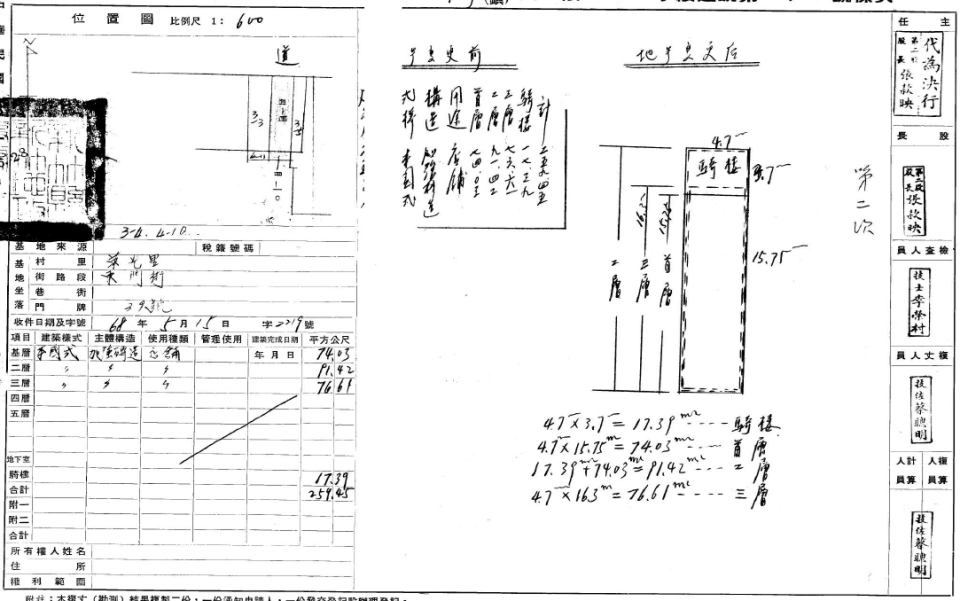 位置圖 比例尺 1: 600
道
3-4. 4-10
基地來源
稅籍號碼
基地坐落
村里
街路段 東門街
巷街
門牌
收件日期及字號 68年5月15日 字2219號
項目 建築樣式 主體構造 使用種類 管理使用 建築完成日期 平方公尺
基層 本國式 加強磚造 店舖 年月日 74.03
二層 〃 〃 〃 91.42
三層 〃 〃 〃 76.61
四層
五層
地下室
騎樓 17.39
合計 259.45
附一
附二
合計
所有權人姓名
住所
權利範圍
附註:本複丈(勘測)結果複製二份,一份通知申請人,一份發交登記股辦理登記。
計
騎樓 一七.三九
三層 七六.六一
二層 九一.四二
首層 七四.〇三
用途 店舖
構造 加強磚造
式樣 本國式
地号变更后
4.7
騎樓
3.7
15.75
首層
三層
二層
第二次
4.7×3.7=17.39m²----騎樓
4.7×15.75=74.03m²----首層
17.39+74.03=91.42m²----二層
4.7×16.3=76.61m²----三層
主任
代為決行
股長 張款映
股長
股長 張款映
檢查人員
技士 李榮村
複丈人員
技佐 蔡聰明
複算人員 計算人員
技佐 蔡聰明